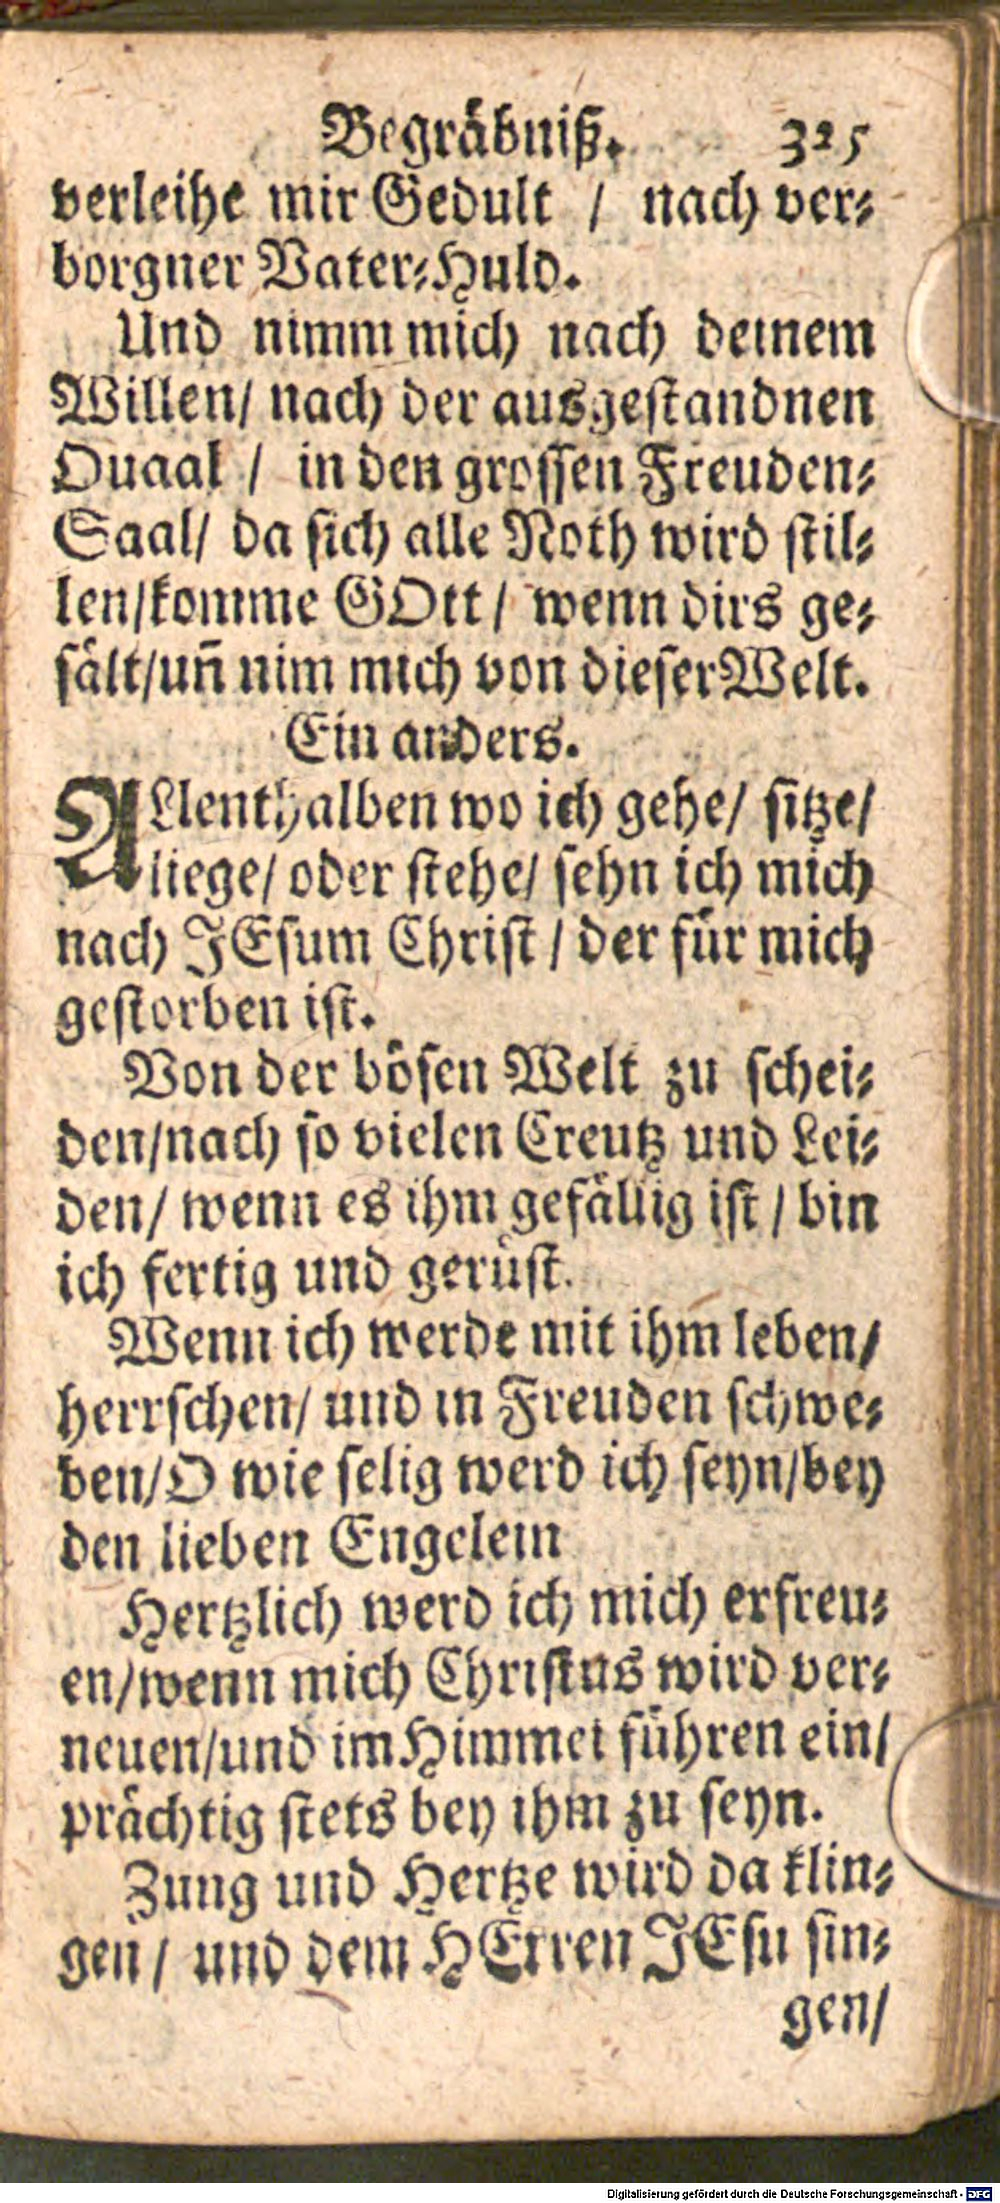 Begräbniß. 325
verleihe mir Gedult / nach ver-
borgner Vater-Huld.
Und nimm mich nach deinem
Willen/ nach der ausgestandnen
Quaal / in den grossen Freuden-
Saal/ da sich alle Noth wird stil-
len/komme GOtt/ wenn dirs ge-
fält/uñ nim mich von dieser Welt.
Ein anders.
ALlenthalben wo ich gehe/ sitze/
liege/ oder stehe/ sehn ich mich
nach JEsum Christ / der für mich
gestorben ist.
Von der bösen Welt zu schei-
den/nach so vielen Creutz und Lei-
den/ wenn es ihm gefällig ist / bin
ich fertig und gerüst.
Wenn ich werde mit ihm leben/
herrschen/ und in Freuden schwe-
ben/O wie selig werd ich seyn/bey
den lieben Engelein
Hertzlich werd ich mich erfreu-
en/wenn mich Christus wird ver-
neuen/und im Himmel führen ein/
prächtig stets bey ihm zu seyn.
Zung und Hertze wird da klin-
gen/ und dem HErren JEsu sin-
gen/
Digitalisierung gefördert durch die Deutsche Forschungsgemeinschaft - DFG